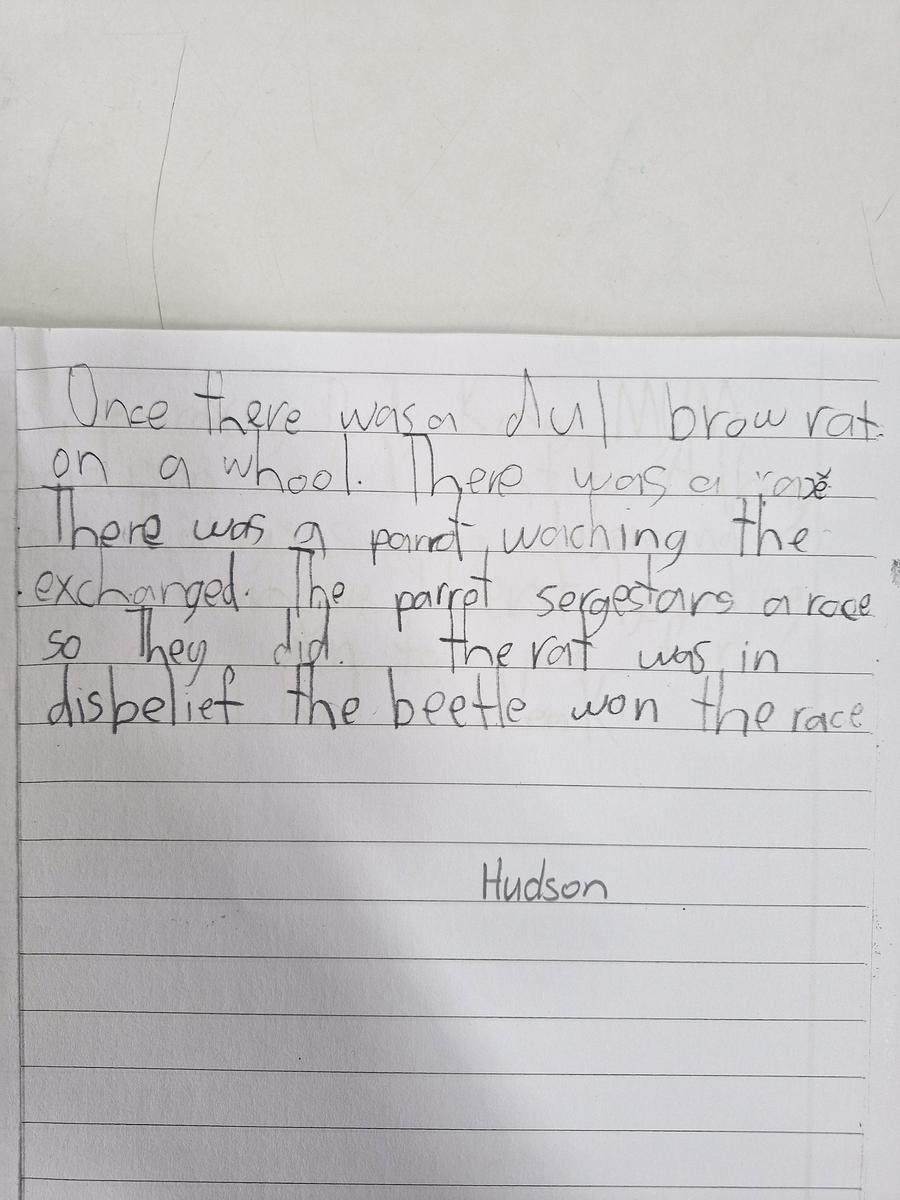 Once there was a dul brow rat
on a whool. There was a race
There was a parrot waching the
exchanged. The parrot sergestars a race
so They did. the rat was in
disbelief the beetle won the race
Hudson